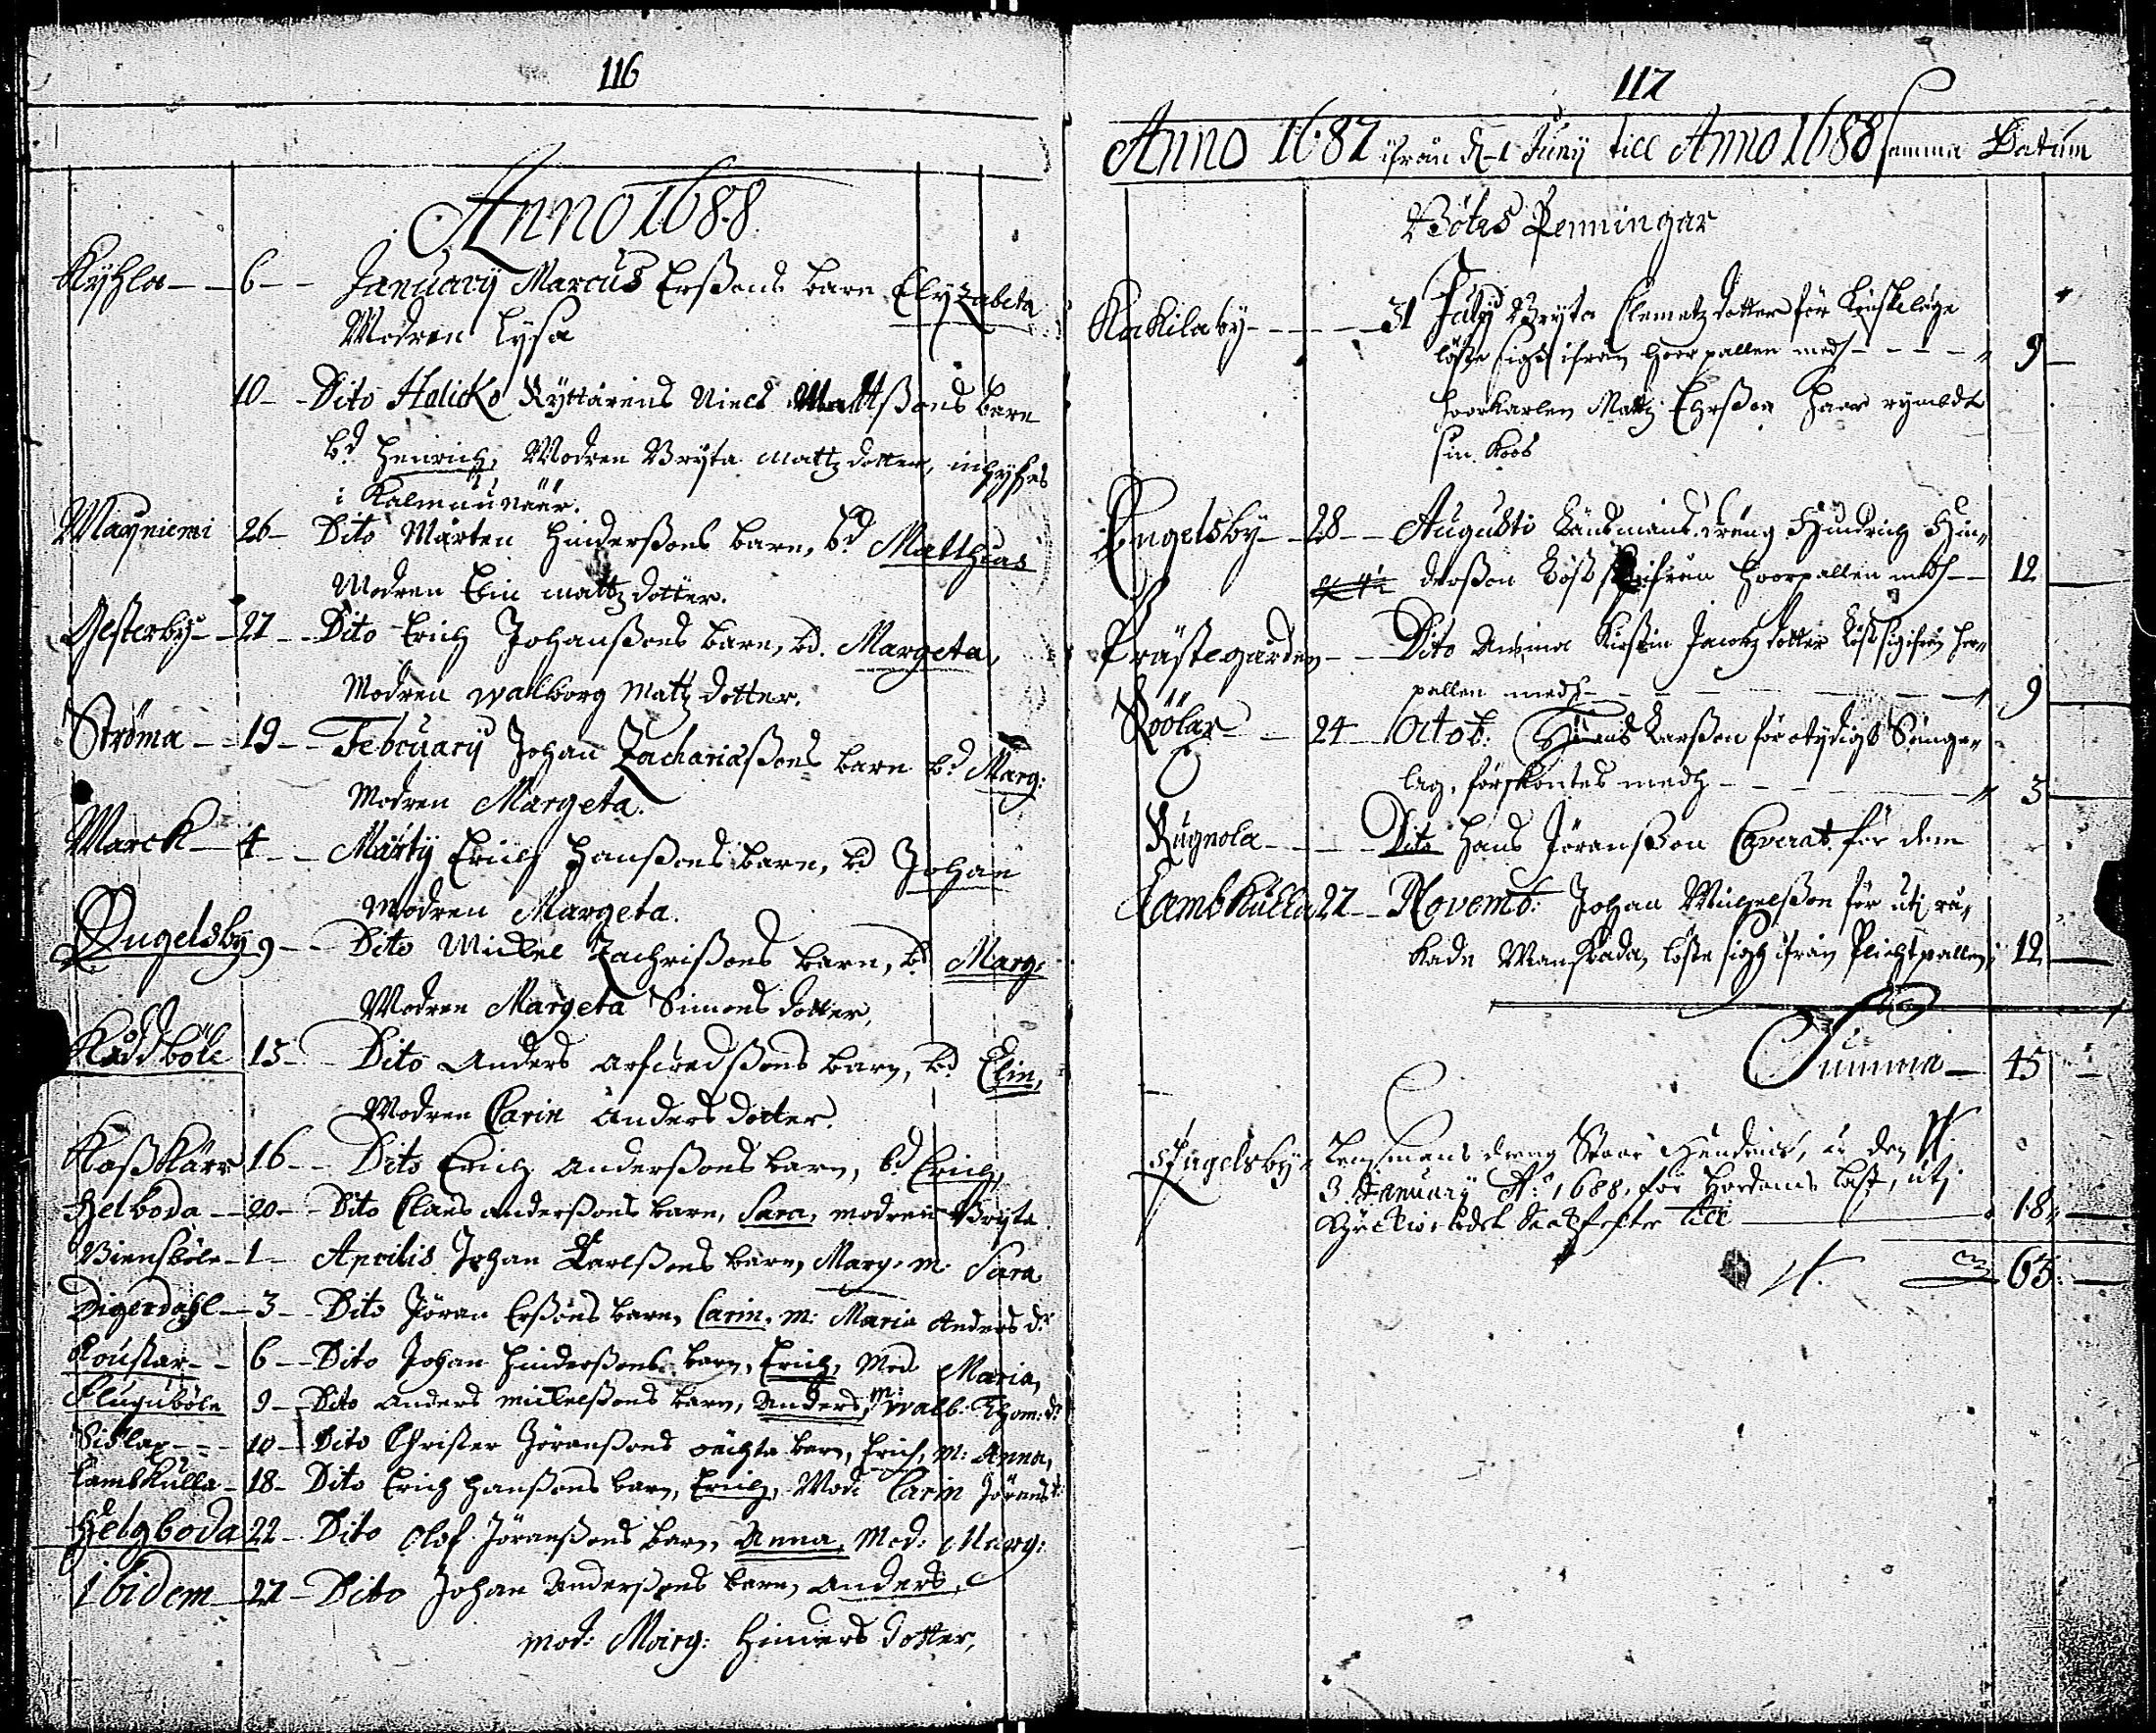 116
Anno 1688.
Kyhla - - 6 - - January Marcus Erßons barn Elyzabeta
Modren Lysa
10 - Dito Halicko Ryttarens Niels Mattßons barn
bd Henrich, Modren Bryta Mattz dotter, inhyses
i Kalmanneär.
Mayniemi 26 - Dito Mårten Hinderßons barn, bd Matthias
Modren Elin Mattz dotter.
Gesterby - - 27 - - Dito Erich Johanßons barn, bd. Margeta,
Modren Walborg Mattz dotter.
Ströma - - 19 - - February Johan Zachariaßons barn bd Marg:
Modren Margeta.
Marck - 4 - - Marty Erich Hanßons barn, bd Johan
Modren Margeta.
Engelsby 9 - - Dito Mickel Zachrißons barn, bd Marg:
Modren Margeta Simons dotter,
Kåddböle 13 - Dito Anders Arfwedßons barn, bd Elin,
Modren Carin Anders dotter.
Kaßkärr 16 - - Dito Erich Anderßons barn, bd Erich,
Helboda - - 20 - - Dito Claes Anderßons barn, Sara, modren Bryta
Biensböle - 1 - Aprilis Johan Karlßons barn, Marg. m. Sara
Digerdahl - 3 - Dito Jöran Erßons barn, Carin. m: Maria Anders dr
6 - - Dito Johan Hinderßons barn, Erich, Mod Maria,
Fluguböle 9 - - Dito Anders Mickelßons barn, Anders, m: Walb: Thom: dr
Sislax - - - 10 - Dito Christer Jöranßons oächta barn, Erich, m: Anna,
Lambkulla - 18 - Dito Erich Hanßons barn, Erich, Mod: Carin Jörans d:
Helgboda 22 - Dito Olof Jöranßons barn, Anna, Mod: Marg:
Ibidem - 27 - Dito Johan Anderßons barn, Anders,
mod: Marg: Hinders dotter,
117
Anno 1687 ifrån d. 1 Juny till Anno 1688 samma Datum
Bötes Penningar
Kakilaby - - - - - 31 July Bryta Clemetz dotter för
löste sigh ifrån hoorpallen medh - - - - " 9 -
hoorkarlen Mattz Ehrßon haar rymbdt
sin koos
Engelsby - - 28 - - Augusti Länsmans dräng Hindrich Hin"
derßon löste ifrån hoorpallen medh - - 12
Prästegården - - Dito Kirstin Jacobz dotter löste sig ifrån hor"
pallen medh - - - - - - " 9
Röölax - 24 - Octob: Hans Larßon för otydigt Sänge"
lag, förskontes medh - - - - " 3
Rugnola - - - - Dito Hans Jöranßon Caverat för dem
Lambkulla 27 - - Novemb: Johan Michelßon för uti rå"
kade Manskada, löste sigh ifrån Plichtpallen: 12
Summa - 45 -
Engelsby " Lensmans dreng Hendrich, den
3 January Ao 1688. för Hordoms last, uti
till - 18 "
65: -